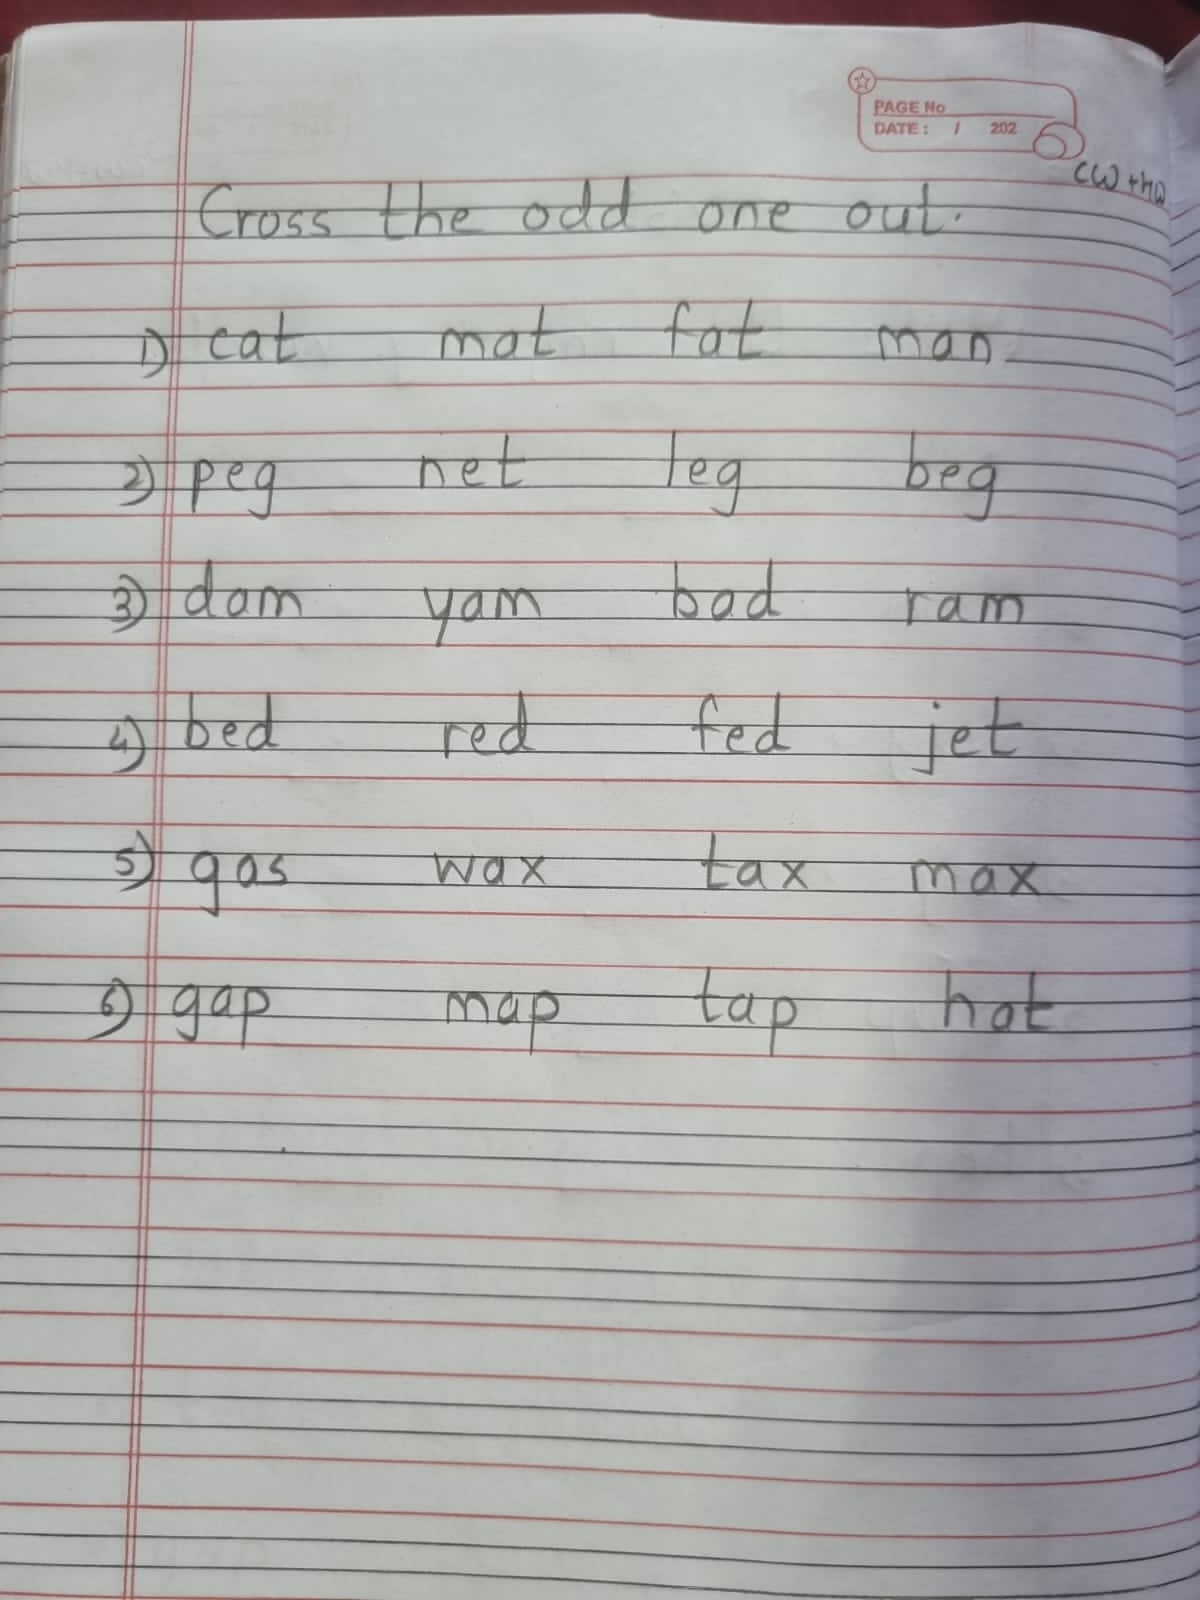 PAGE No
DATE: / 202
cw + hw
Cross the odd one out.
1) cat mat fat man
2) peg net leg beg
3) dam yam bad ram
4) bed red fed jet
5) gas wax tax max
6) gap map tap hat